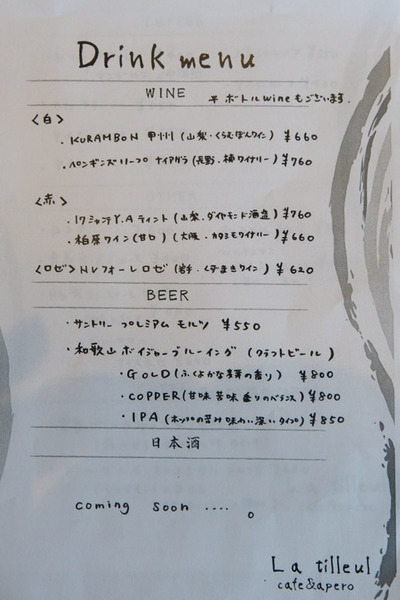 Drink menu
WINE
ボトルwineもございます.
<白>
・KURAMBON 甲州 (山梨・くらむぼんワイン) ¥660
・ペンギンズリープ ナイアガラ (長野. 楠ワイナリー) ¥760
<赤>
Y.Aティント (山梨. ダイヤモンド酒造) ¥760
・柏原ワイン(甘口) (大阪・カタシモワイナリー) ¥660
<ロゼ> NVフォーレロゼ (岩手. くずまきワイン) ¥620
BEER
・サントリー プレミアム モルツ ¥550
・和歌山 ボイジャーブルーイング (クラフトビール)
・GOLD(ふくよかな麦芽の香り) ¥800
・COPPER(甘味 苦味 香りのバランス) ¥800
・IPA (ホップの苦み 味わい深いタイプ) ¥850
日本酒
coming soon ....。
La tilleul
cafe&apero